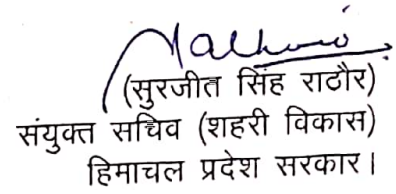 (सुरजीत सिंह राठौर)
संयुक्त सचिव (शहरी विकास)
हिमाचल प्रदेश सरकार।